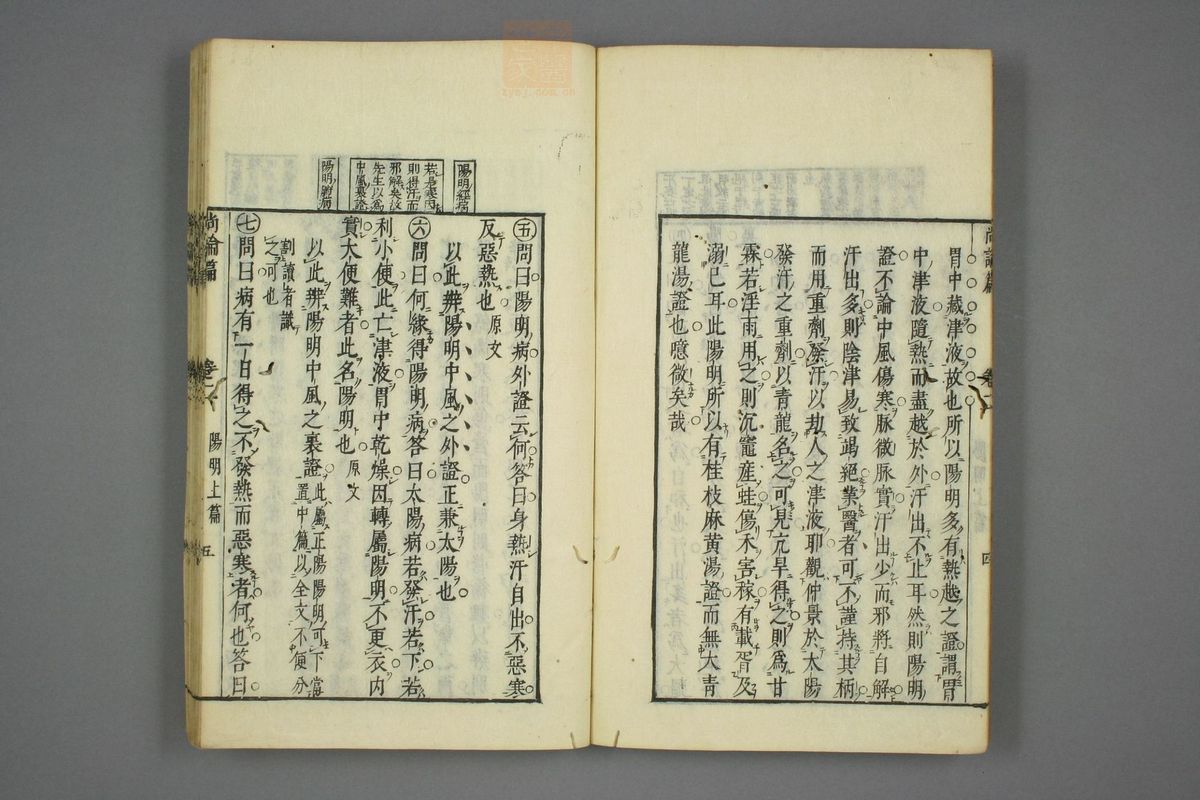 胃中藏津液故也所以陽明多有熱越之證謂胃
中津液隨熱而盡越於外汗出不止耳然則陽明
證不論中風傷寒脉微脉實汗出少而邪將自解
汗出多則陰津易致竭絕業醫者可不謹持其柄
而用重劑發汗以劫人之津液耶觀仲景於太陽
發汗之重劑以青龍名之可見亢旱得之則爲甘
霖若淫雨用之則沉竈產蛙傷禾害稼有載胥及
溺已耳此陽明所以有桂枝麻黄湯證而無大青
龍湯證也噫微矣哉
尚論篇
卷二
四
陽明經病
若是寒因
則得汗而
邪解矣故
先生以爲
中風裏證
陽明腑病
五問曰陽明病外證云何答曰身熱汗自出不惡寒
反惡熱也 原文
以此辨陽明中風之外證正兼太陽也
六問曰何緣得陽明病答曰太陽病若發汗若下若
利小便此亡津液胃中乾燥因轉屬陽明不更衣内
實大便難者此名陽明也 原文
以此辨陽明中風之裏證 此屬正陽陽明可下當
置中篇以全文不便分
割讀者識
之可也
七問曰病有一日得之不發熱而惡寒者何也答曰
尚論篇
卷二
陽明上篇
五
zysj.com.cn